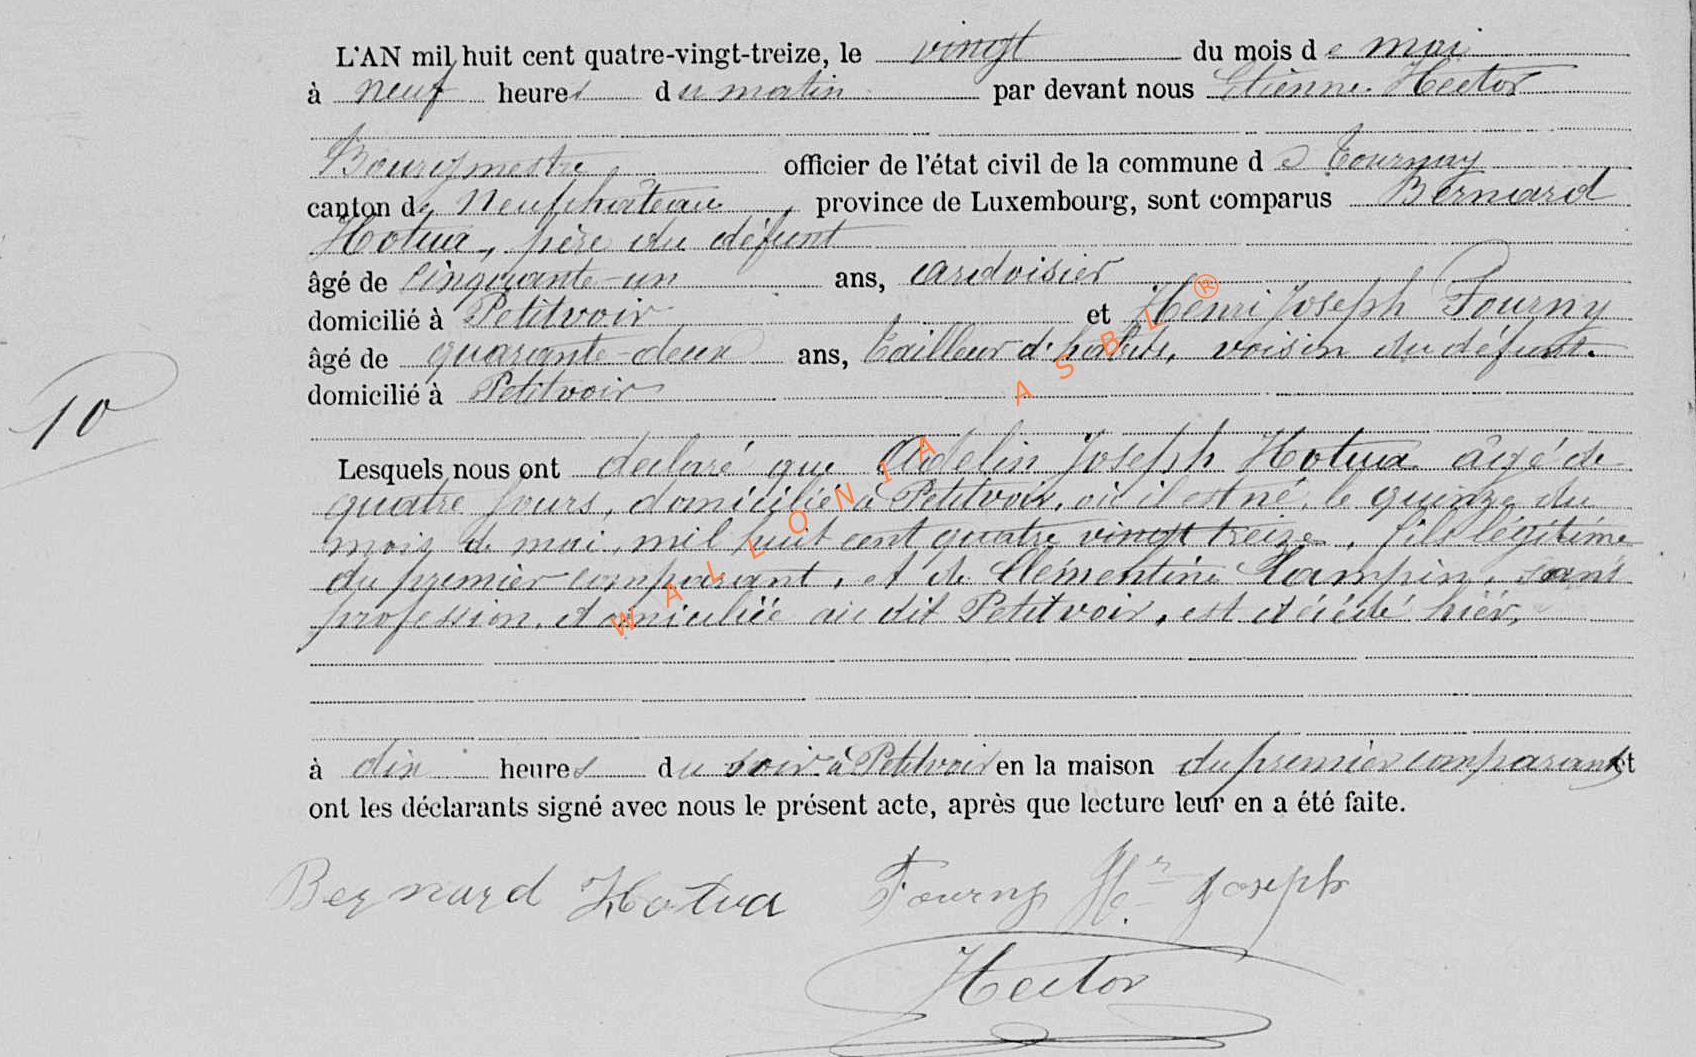 L'AN mil huit cent quatre-vingt-treize, le vingt du mois de mai
à neuf heures du matin par devant nous Etienne Hector
Bourgmestre officier de l'état civil de la commune de Tournay
canton de Neufchâteau province de Luxembourg, sont comparus Bernard
Hotua, père du défunt
âgé de cinquante-un ans, ardoisier
domicilié à Petitvoir et Henri Joseph Fourny
âgé de quarante-deux ans, tailleur d'habits, voisin du défunt.
domicilié à Petitvoir
10
Lesquels nous ont declaré que Adelin Joseph Hotua âgé de
quatre jours, domicilié à Petitvoir, où il est né, le quinze du
mois de mai, mil huit cent quatre vingt treize, fils légitime
du premier comparant, et de Clémentine Lampin, sans
profession, domiciliée au dit Petitvoir, est décédé hier,
à dix heures du soir à Petitvoir en la maison du premier comparant et
ont les déclarants signé avec nous le présent acte, après que lecture leur en a été faite.
Bernard Hotua Fourny Hri Joseph
Hector
WALLONIA ASBL ®